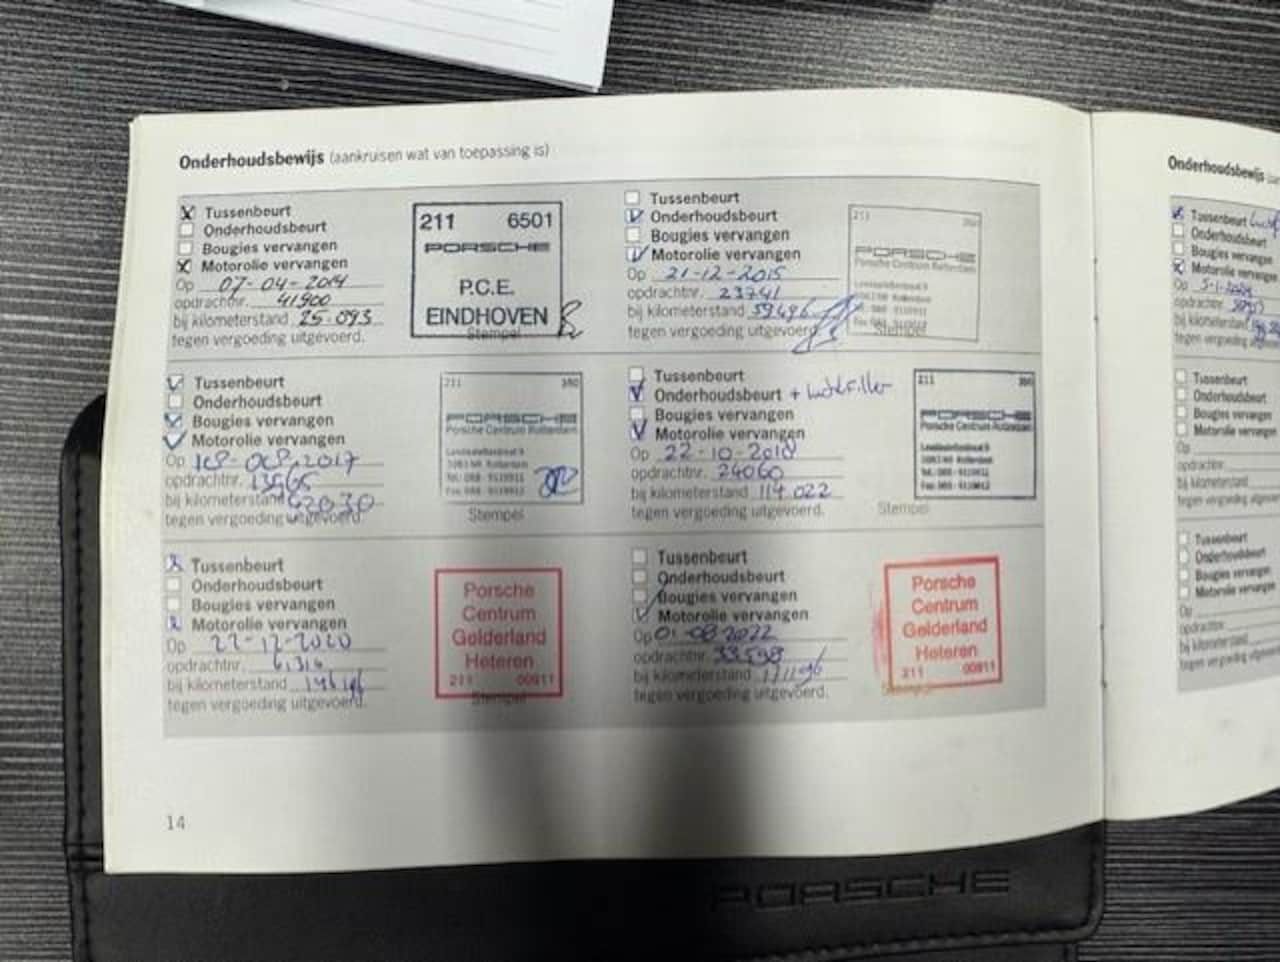 Onderhoudsbewijs (aankruisen wat van toepassing is)
X Tussenbeurt
Onderhoudsbeurt
Bougies vervangen
X Motorolie vervangen
Op 07-04-2014
opdrachtnr. 41900
bij kilometerstand 25.093
tegen vergoeding uitgevoerd.
211 6501
PORSCHE
P.C.E.
EINDHOVEN
Stempel
Tussenbeurt
Onderhoudsbeurt
Bougies vervangen
Motorolie vervangen
Op 21-12-2015
opdrachtnr. 23741
bij kilometerstand 59496
tegen vergoeding uitgevoerd
211
PORSCHE
Porsche Centrum Rotterdam
Stempel
Tussenbeurt
Onderhoudsbeurt
Bougies vervangen
Motorolie vervangen
Op 2017
opdrachtnr.
bij kilometerstand
tegen vergoeding uitgevoerd.
211 350
PORSCHE
Porsche Centrum Rotterdam
Stempel
Tussenbeurt
Onderhoudsbeurt + luchtfilter
Bougies vervangen
Motorolie vervangen
Op 22-10-2018
opdrachtnr. 24060
bij kilometerstand 114.022
tegen vergoeding uitgevoerd.
211
PORSCHE
Porsche Centrum Rotterdam
Stempel
Tussenbeurt
Onderhoudsbeurt
Bougies vervangen
Motorolie vervangen
Op 22-12-2020
opdrachtnr.
bij kilometerstand
tegen vergoeding uitgevoerd.
Porsche
Centrum
Gelderland
Heteren
211 00911
Stempel
Tussenbeurt
Onderhoudsbeurt
Bougies vervangen
Motorolie vervangen
Op 01-08-2022
opdrachtnr. 33598
bij kilometerstand
tegen vergoeding uitgevoerd.
Porsche
Centrum
Gelderland
Heteren
211 00911
14
Onderhoudsbewijs
Tussenbeurt
Onderhoudsbeurt
Bougies vervangen
Motorolie vervangen
Op
opdrachtnr.
bij kilometerstand
tegen vergoeding
Tussenbeurt
Onderhoudsbeurt
Bougies vervangen
Motorolie vervangen
Op
opdrachtnr.
bij kilometerstand
tegen vergoeding
Tussenbeurt
Onderhoudsbeurt
Bougies vervangen
Motorolie vervangen
Op
opdrachtnr.
bij kilometerstand
tegen vergoeding
PORSCHE